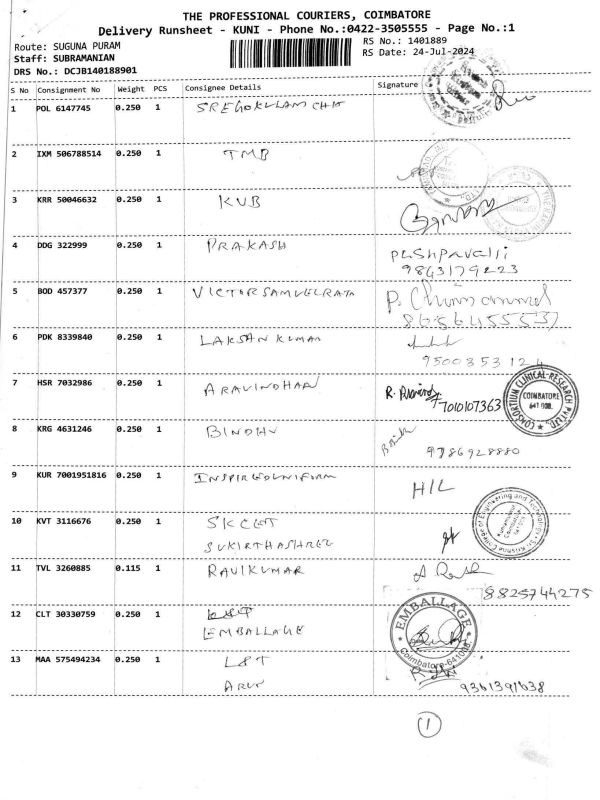 THE PROFESSIONAL COURIERS, COIMBATORE
Delivery Runsheet - KUNI - Phone No.:0422-3505555 - Page No.:1
Route: SUGUNA PURAM
RS No.: 1401889
Staff: SUBRAMANIAN
RS Date: 24-Jul-2024
DRS No.: DCJB140188901
S No Consignment No Weight PCS Consignee Details Signature
1 POL 6147745 0.250 1
2 IXM 506788514 0.250 1 TMB
3 KRR 50046632 0.250 1 KVB
4 DDG 322999 0.250 1 PRAKASH Pushpavalli
9843179223
5 BOD 457377 0.250 1 VICTOR SAMUELRAJA P.
6 PDK 8339840 0.250 1 LAKSAN KUMAR
7 HSR 7032986 0.250 1 ARAVINDHAN R.
7010107363
CONSORTIUM CLINICAL RESEARCH PVT LTD
COIMBATORE
8 KRG 4631246 0.250 1 BINDHU
9786928880
9 KUR 7001951816 0.250 1 INSPIREDUNIFORM H/L
10 KVT 3116676 0.250 1 SKCET
SUKIRTHASHREE
Sri Krishna College of Engineering and Technology
11 TVL 3260885 0.115 1 RAVIKUMAR
8825744275
12 CLT 30330759 0.250 1 L&T
EMBALLAGE
EMBALLAGE
Coimbatore-641008
13 MAA 575494234 0.250 1 L&T
ARUN
1